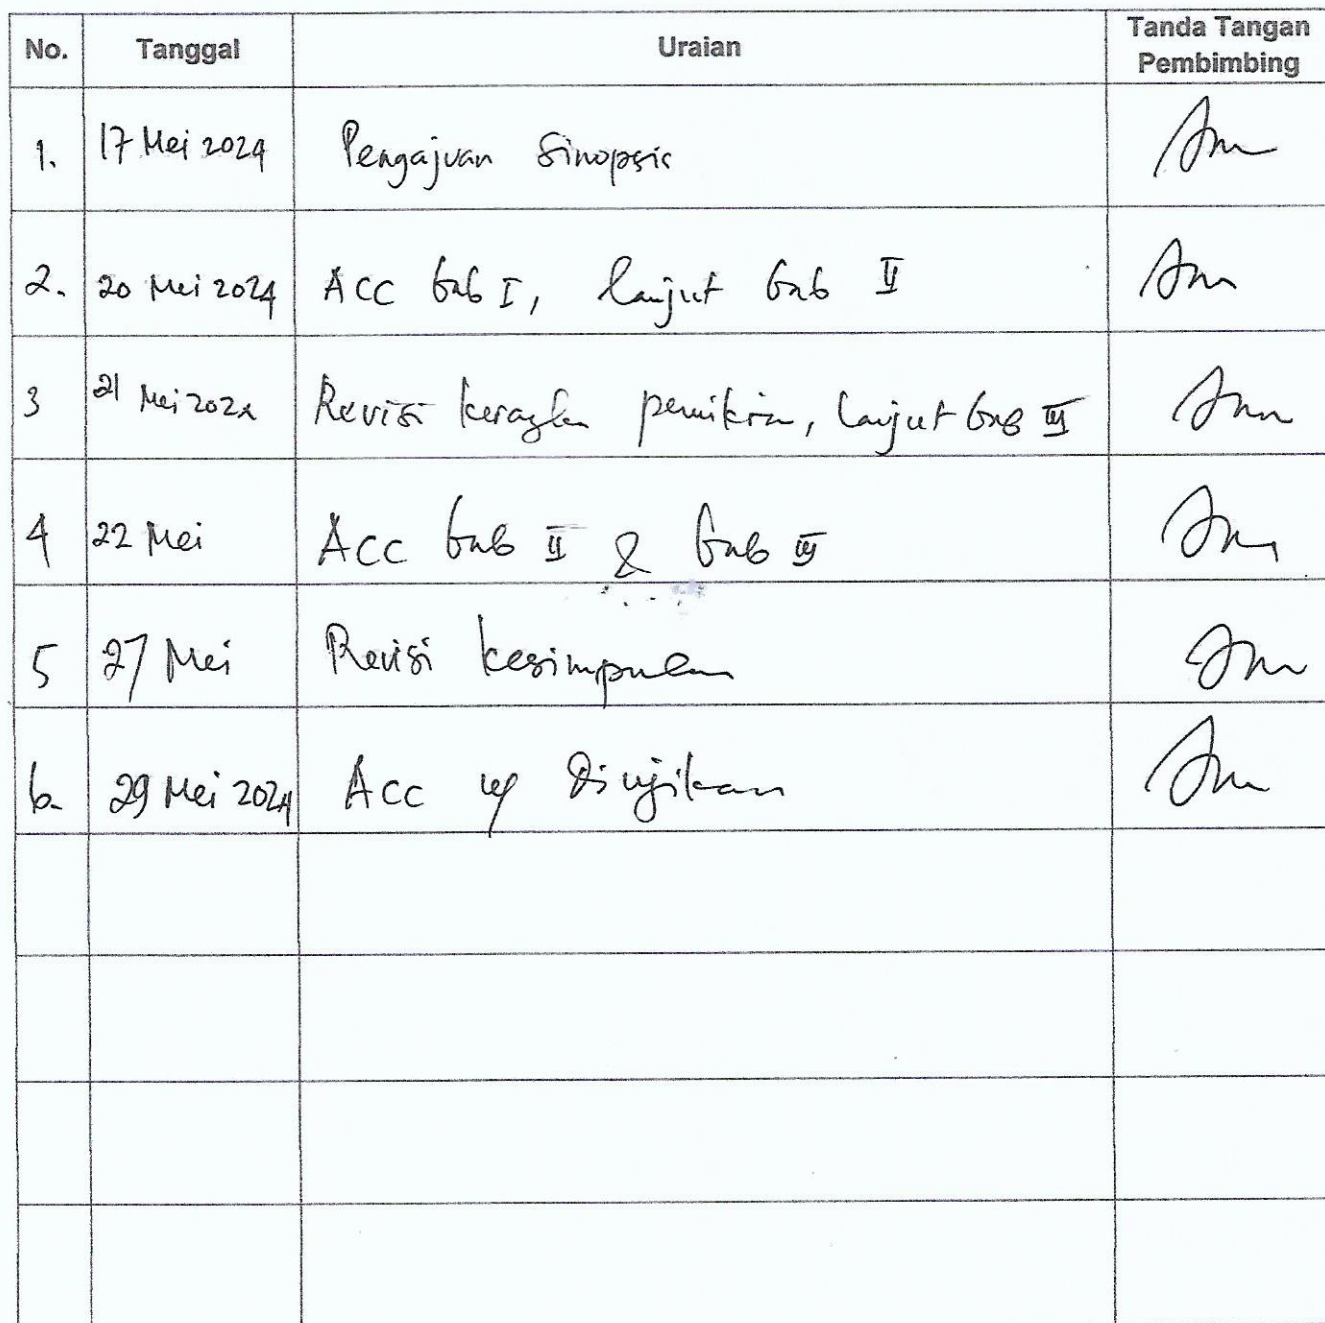 No. Tanggal Uraian Tanda Tangan Pembimbing
1. 17 Mei 2024 Pengajuan Sinopsis
2. 20 Mei 2024 ACC bab I, lanjut bab II
3 21 Mei 2024 Revisi kerangka pemikiran, lanjut bab III
4 22 Mei ACC bab II & bab III
5 27 Mei Revisi kesimpulan
6. 29 Mei 2024 Acc Diujikan